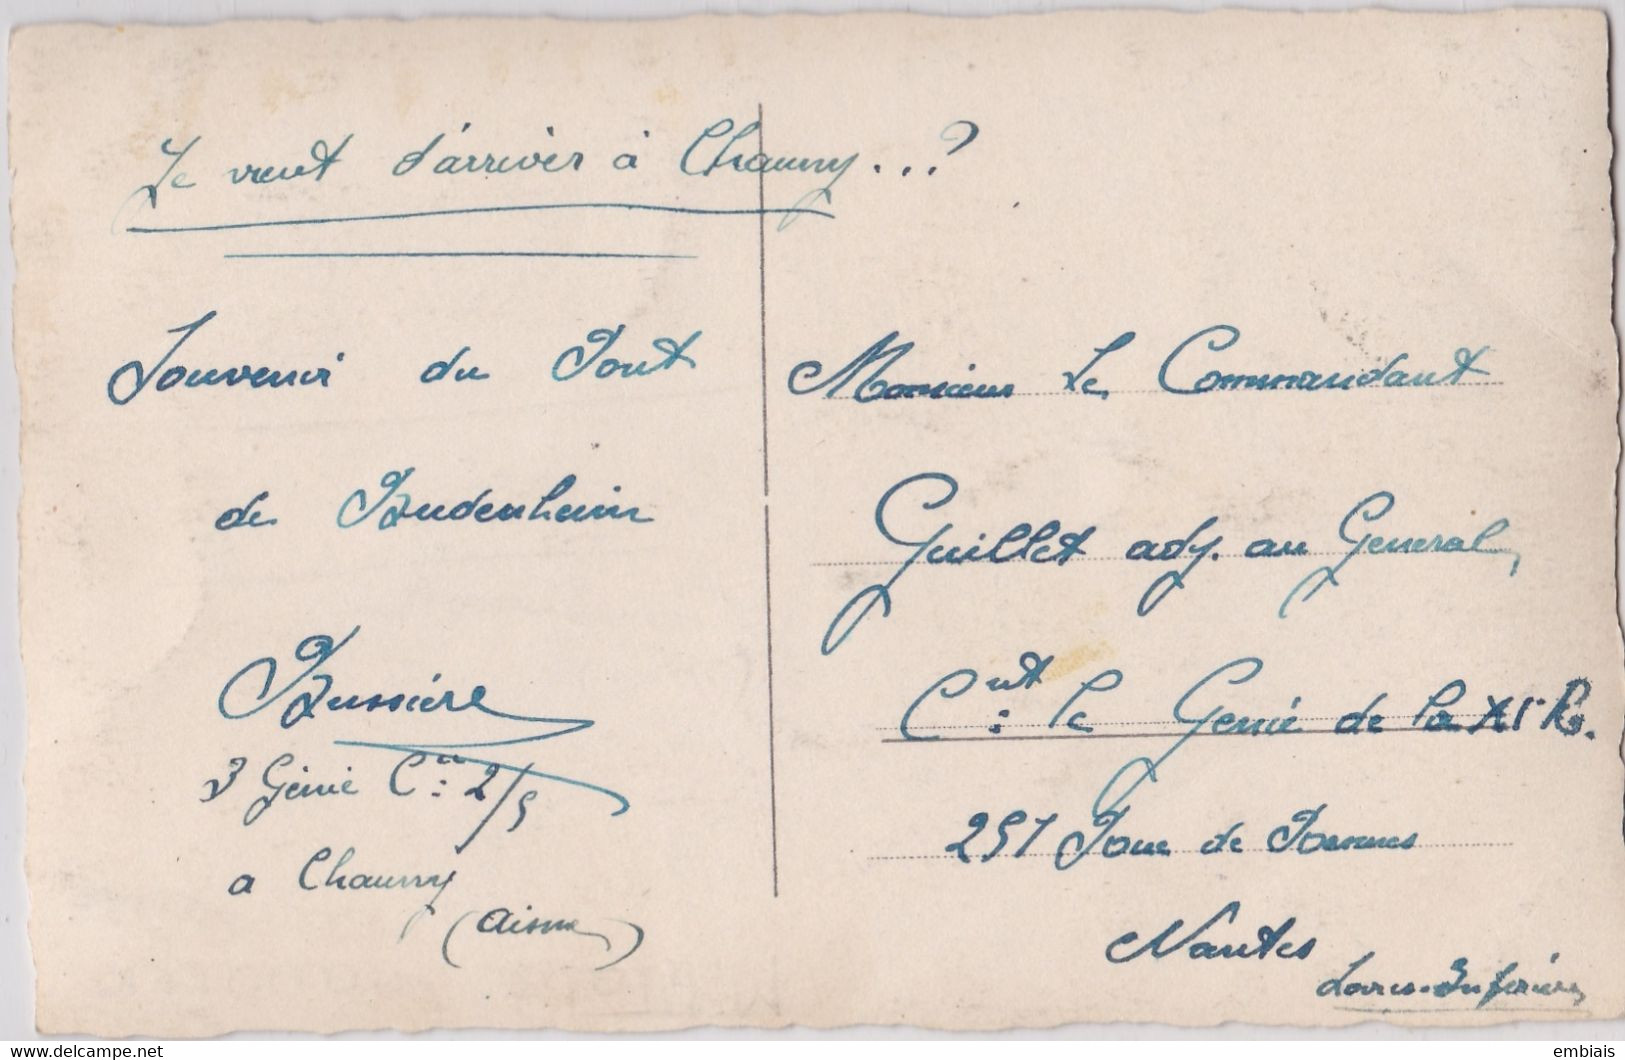 Je vient d'arriver à Chauny...?
Souvenir du Pont
de Budenheim
Bussière
3 Génie Cie 2/5
a Chauny
(Aisne)
Monsieur Le Commandant
Guillet adj. au General
Cnt le Genie de la XIe R.
251 Route de Rennes
Nantes
Loire-Inférieure
www.delcampe.net
embiais